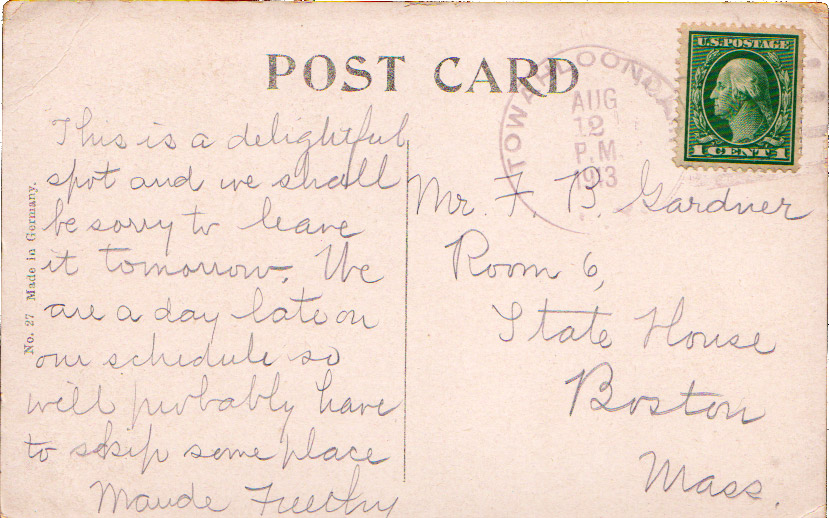 POST CARD
AUG
12
P.M.
1913
U.S. POSTAGE
1 CENT 1
No. 27 Made in Germany.
This is a delightful
spot and we shall
be sorry to leave
it tomorrow. We
are a day late on
our schedule so
will probably have
to skip some place
Maude
Mr. F. B. Gardner
Room 6,
State House
Boston
Mass.